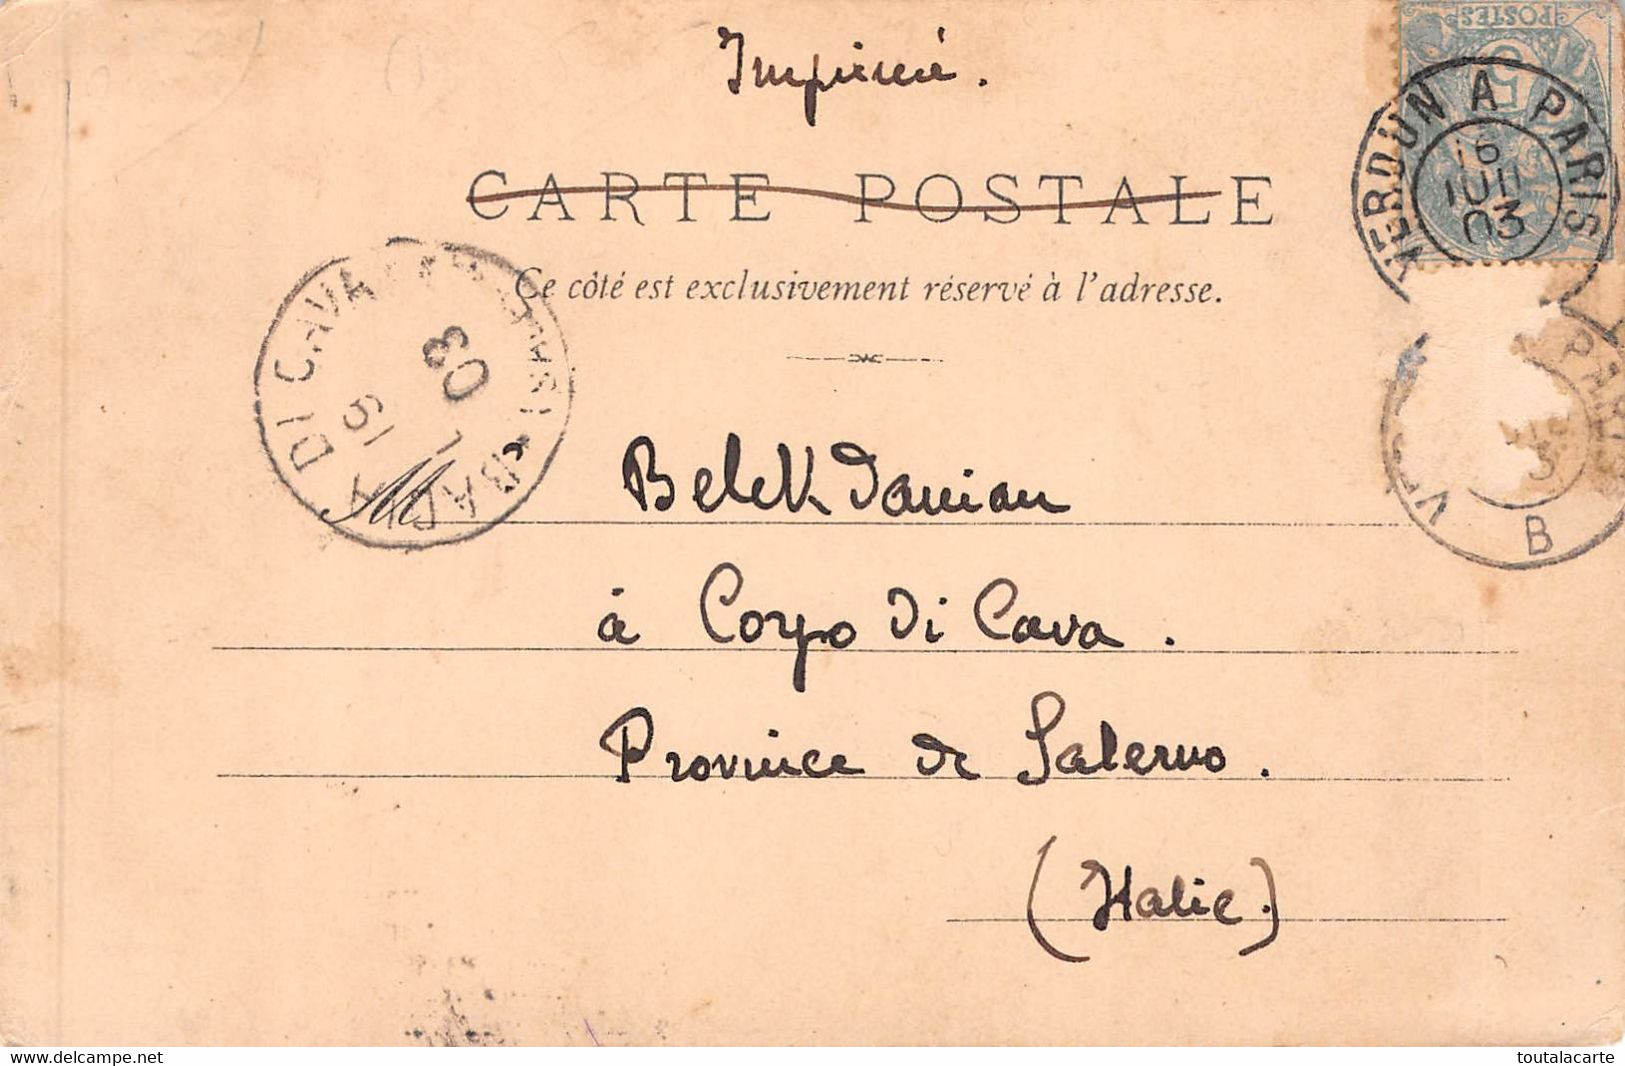 Imprimé.
POSTES
5
VERDUN A PARIS
16
JUIL
03
CARTE POSTALE
Ce côté est exclusivement réservé à l'adresse.
DI CAVA
19
03
PARIS
3
B
M. Belek Damian
à Corpo Di Cava.
Province de Salerno.
(Italie)
www.delcampe.net
toutalacarte